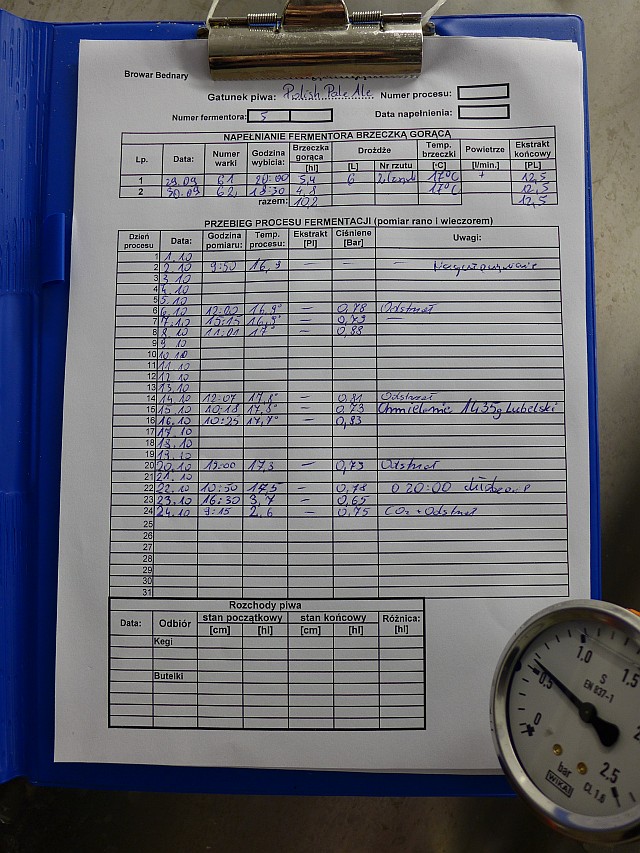 Browar Bednary
Gatunek piwa: Polish Pale Ale Numer procesu:
Numer fermentora: 5 Data napełnienia:
NAPEŁNIANIE FERMENTORA BRZECZKĄ GORĄCĄ
Lp. Data: Numer warki Godzina wybicia: Brzeczka gorąca [hl] Drożdże [L] Nr rzutu Temp. brzeczki [°C] Powietrze [l/min.] Ekstrakt końcowy [PL]
1 29.09 61 20:00 5,4 6 17°C + 12,5
2 30.09 62 18:30 4,8 17°C 12,5
razem: 102 12,5
PRZEBIEG PROCESU FERMENTACJI (pomiar rano i wieczorem)
Dzień procesu Data: Godzina pomiaru: Temp. procesu: Ekstrakt [Pl] Ciśnienie [Bar] Uwagi:
1 1.10
2 2.10 9:50 16,9 — — —
3 3.10
4 4.10
5 5.10
6 6.10 12:00 16,9° — 0,78 Odstrzał
7 7.10 15:15 16,9° — 0,79 —
8 8.10 11:01 17° — 0,88
9 9.10
10 10.10
11 11.10
12 12.10
13 13.10
14 14.10 12:07 17,8° — 0,81 Odstrzał
15 15.10 10:18 17,8° — 0,73 Chmielenie 1435g Lubelski
16 16.10 10:25 17,7° — 0,83
17 17.10
18 18.10
19 19.10
20 20.10 12:00 17,3 — 0,79 Odstrzał
21 21.10
22 22.10 10:50 17,5 — 0,78 O 20:00
23 23.10 16:30 3,7 — 0,65
24 24.10 9:15 2,6 — 0,75 CO2 + Odstrzał
25
26
27
28
29
30
31
Rozchody piwa
Data: Odbiór stan początkowy [cm] [hl] stan końcowy [cm] [hl] Różnica: [hl]
Kegi
Butelki
0 0,5 1.0 1.5 2 2,5
S
EN 837-1
bar
WIKA
CL 1,6